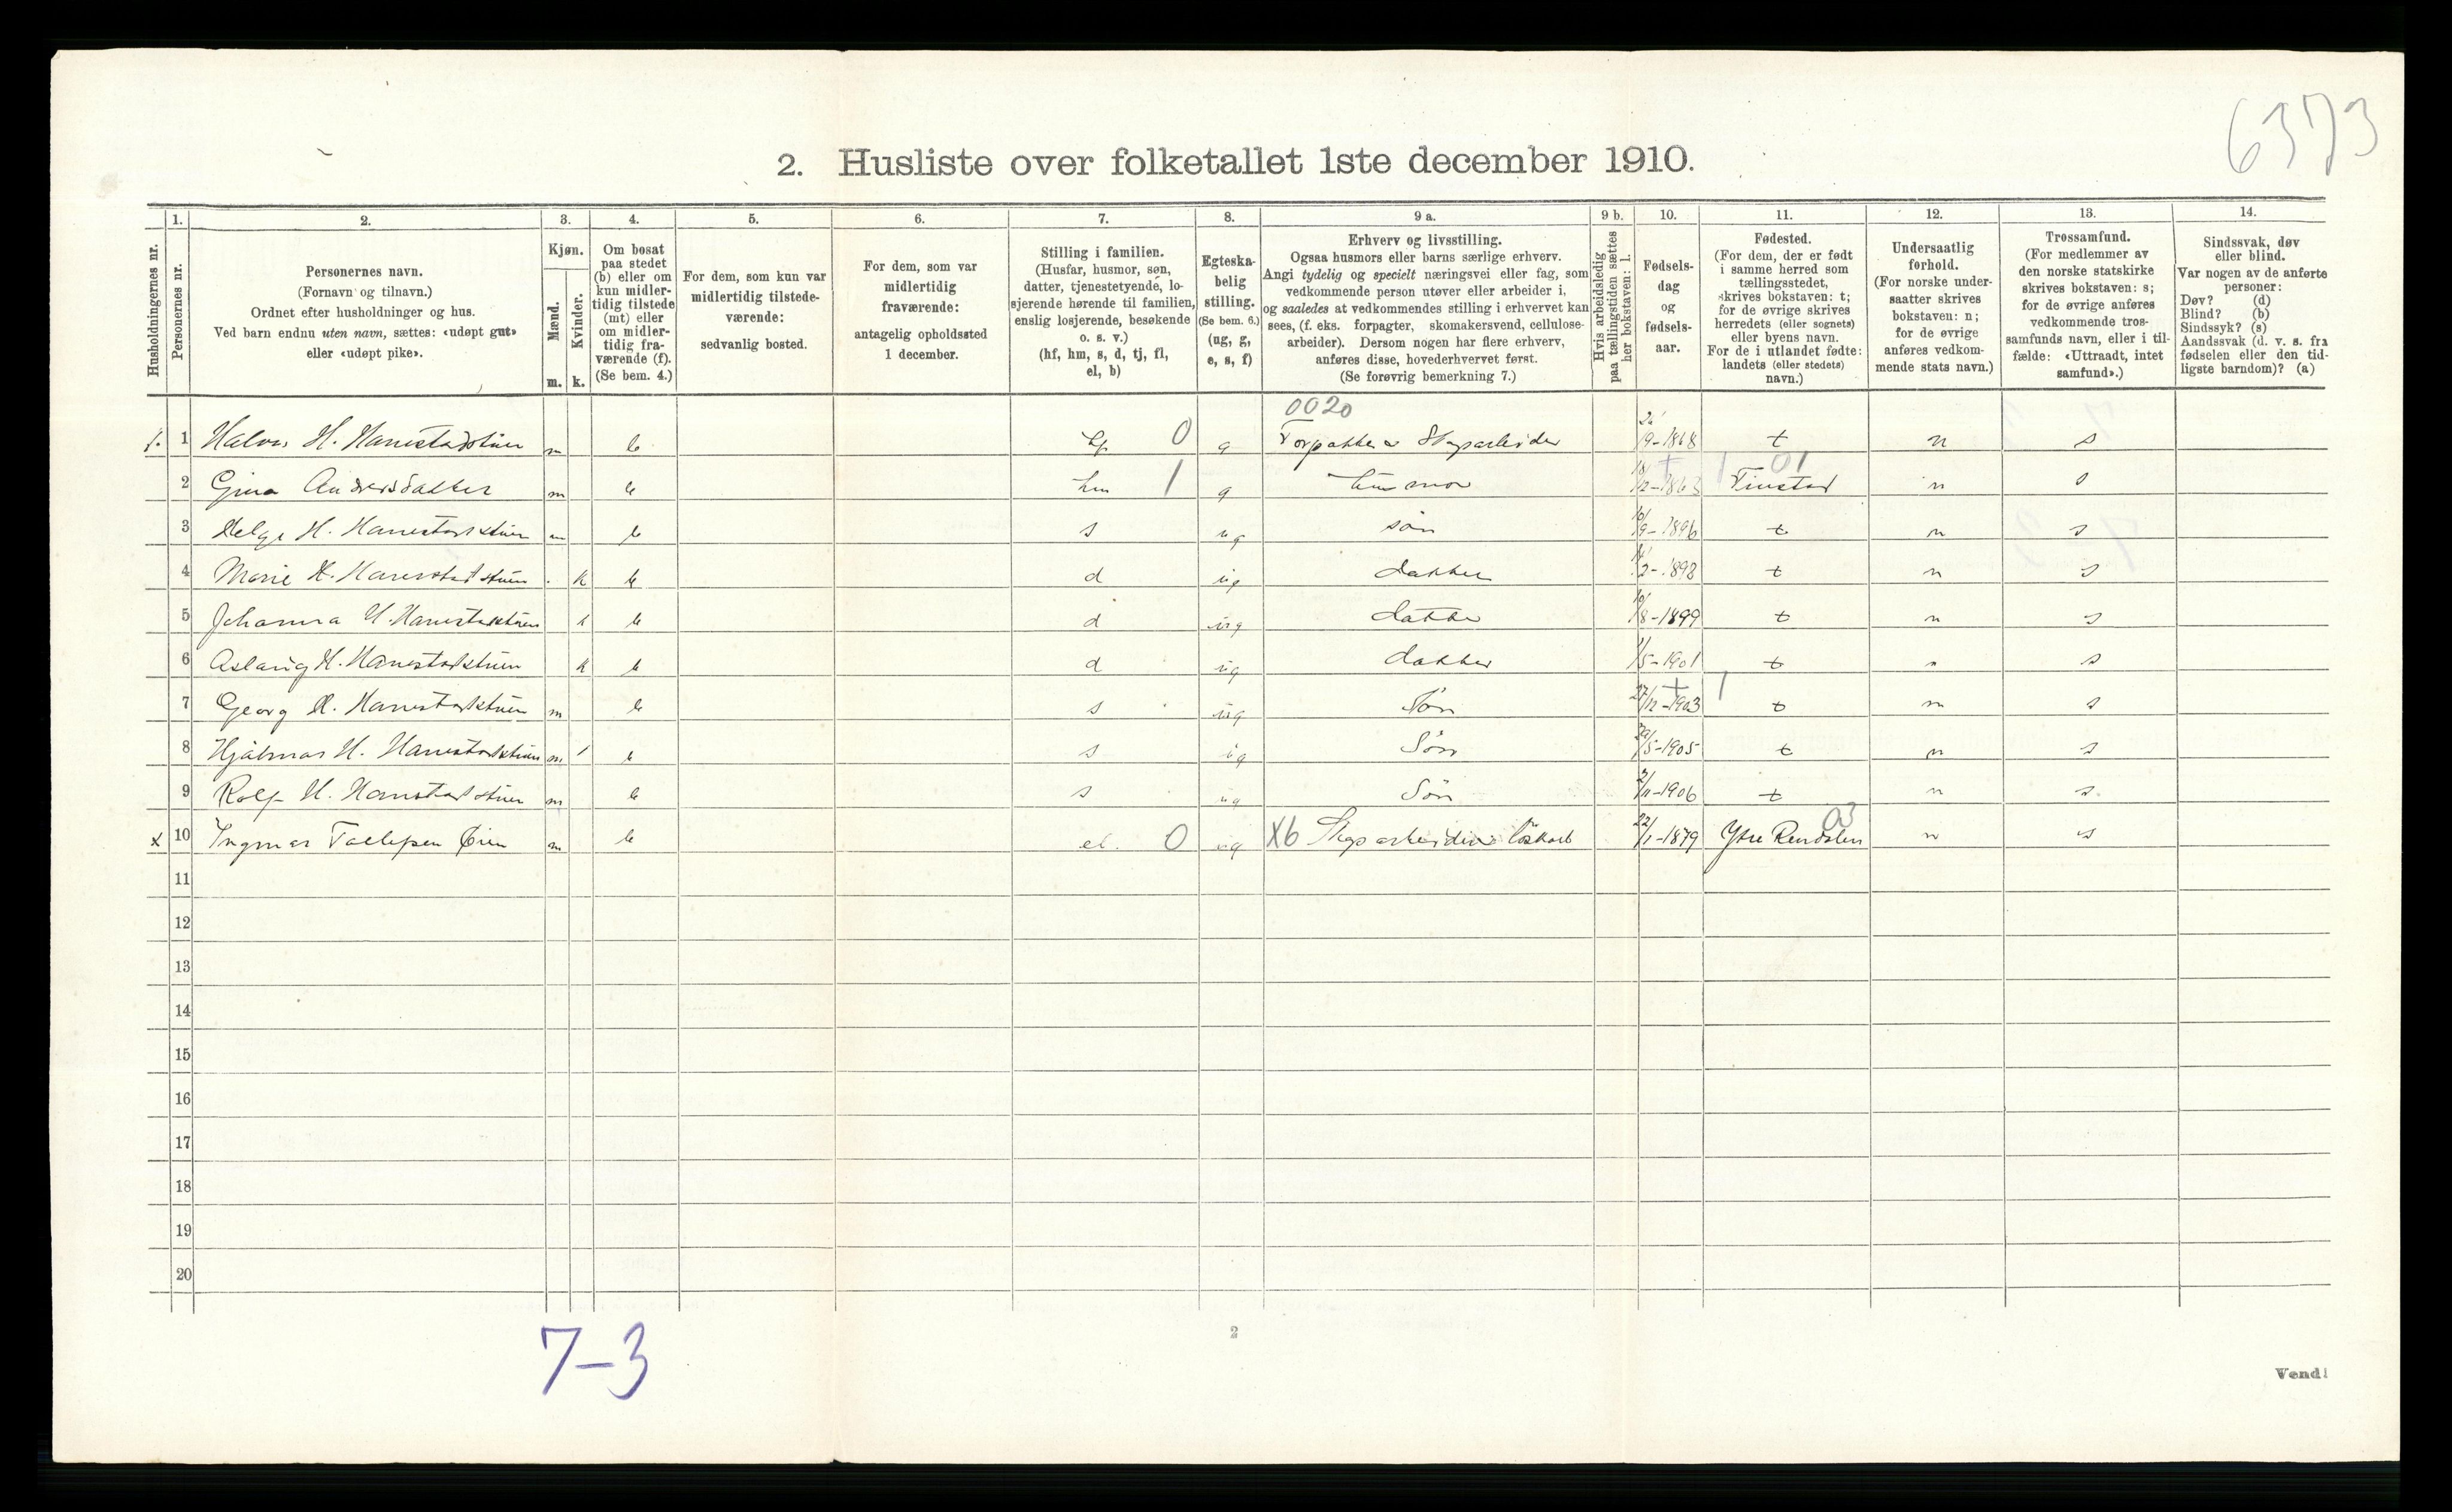 6373
2. Husliste over folketallet 1ste december 1910.
Husholdningernes nr.
1.
Personernes nr.
2.
Personernes navn.
(Fornavn og tilnavn.)
Ordnet efter husholdninger og hus.
Ved barn endnu uten navn, sættes: «udøpt gut»
eller «udøpt pike».
3.
Kjøn.
Mænd.
Kvinder.
m. k.
4.
Om bosat
paa stedet
(b) eller om
kun midler-
tidig tilstede
(mt) eller
om midler-
tidig fra-
værende (f).
(Se bem. 4.)
5.
For dem, som kun var
midlertidig tilstede-
værende:
sedvanlig bosted.
6.
For dem, som var
midlertidig
fraværende:
antagelig opholdssted
1 december.
7.
Stilling i familien.
(Husfar, husmor, søn,
datter, tjenestetyende, lo-
sjerende hørende til familien,
enslig losjerende, besøkende
o. s. v.)
(hf, hm, s, d, tj, fl,
el, b)
8.
Egteska-
belig
stilling.
(Se bem. 6.)
(ug, g,
e, s, f)
9 a.
Erhverv og livsstilling.
Ogsaa husmors eller barns særlige erhverv.
Angi tydelig og specielt næringsvei eller fag, som
vedkommende person utøver eller arbeider i,
og saaledes at vedkommendes stilling i erhvervet kan
sees, (f. eks. forpagter, skomakersvend, cellulose-
arbeider). Dersom nogen har flere erhverv,
anføres disse, hovederhvervet først.
(Se forøvrig bemerkning 7.)
9 b.
Hvis arbeidsledig
paa tællingstiden sættes
her bokstaven: l.
10.
Fødsels-
dag
og
fødsels-
aar.
11.
Fødested.
(For dem, der er født
i samme herred som
tællingsstedet,
skrives bokstaven: t;
for de øvrige skrives
herredets (eller sognets)
eller byens navn.
For de i utlandet fødte:
landets (eller stedets)
navn.)
12.
Undersaatlig
forhold.
(For norske under-
saatter skrives
bokstaven: n;
for de øvrige
anføres vedkom-
mende stats navn.)
13.
Trossamfund.
(For medlemmer av
den norske statskirke
skrives bokstaven: s;
for de øvrige anføres
vedkommende tros-
samfunds navn, eller i til-
fælde: «Uttraadt, intet
samfund».)
14.
Sindssvak, døv
eller blind.
Var nogen av de anførte
personer:
Døv? (d)
Blind? (b)
Sindssyk? (s)
Aandssvak (d. v. s. fra
fødselen eller den tid-
ligste barndom)? (a)
0020
1. 1 Halvor H. Hanestadstuen m b hf 0 g Forpakter Skogarbeider 9-1868 t n s
01
2 Gina Andersdatter m b hm 1 g husmor 12-1863 n s
3 Helge H. Hanestadstuen m b s ug søn 10/9-1896 t n s
4 Marie H. Hanestadstuen k b d ug datter 2-1898 t n s
5 Johanna H. Hanestadstuen k b d ug datter 10/8-1899 t n s
6 Aslaug H. Hanestadstuen k b d ug datter 1/5-1901 t n s
7 Georg H. Hanestadstuen m b s ug Søn 27/12-1903 1 t n s
8 Hjalmar H. Hanestadstuen m b s ug Søn 5-1905 t n s
9 Rolf H. Hanestadstuen m b s ug Søn 11-1906 t n s
03
x 10 Ingmar m b el. 0 ug X6 Skogsarbeider 22/1-1879 Ytre Rendalen n s
11
12
13
14
15
16
17
18
19
20
7-3
2
Vend!